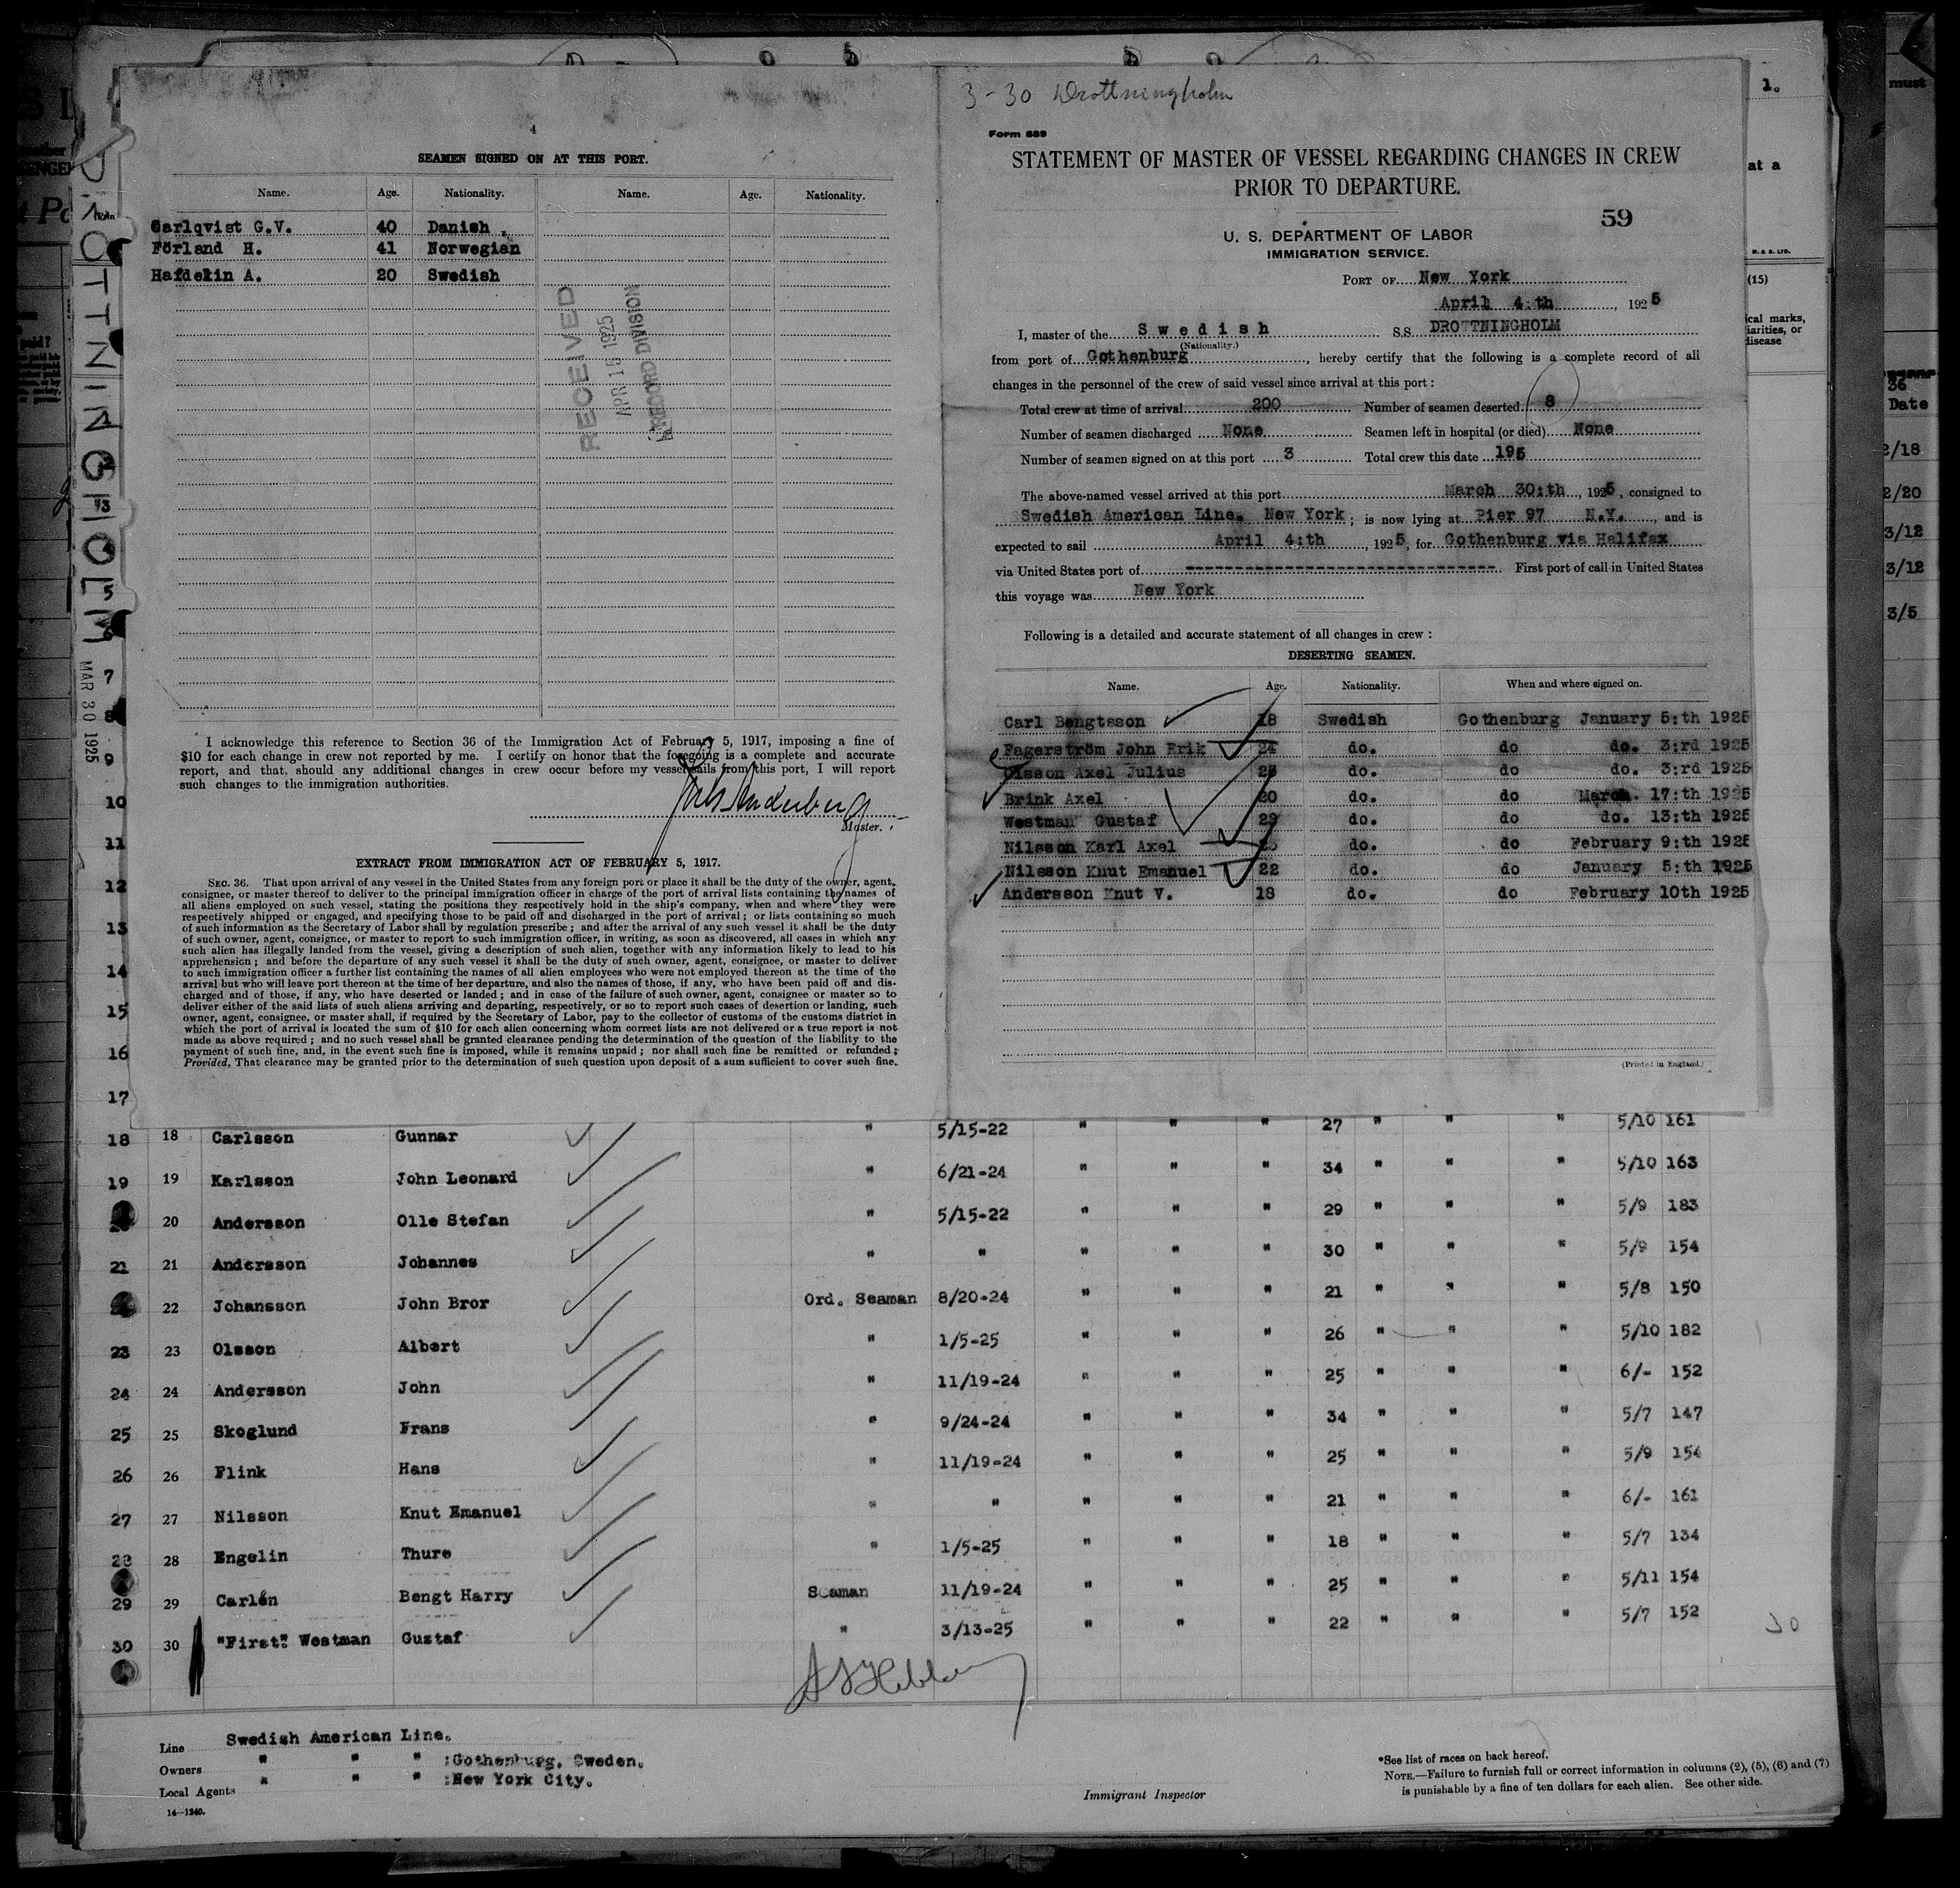 4
SEAMEN SIGNED ON AT THIS PORT.
Name. Age. Nationality. Name. Age. Nationality.
Carlqvist G.V. 40 Danish
Förland H. 41 Norwegian
Hafdelin A. 20 Swedish
RECEIVED
APR 15 1925
RECORD DIVISION
I acknowledge this reference to Section 36 of the Immigration Act of February 5, 1917, imposing a fine of
$10 for each change in crew not reported by me. I certify on honor that the foregoing is a complete and accurate
report, and that, should any additional changes in crew occur before my vessel sails from this port, I will report
such changes to the immigration authorities.
Master.
EXTRACT FROM IMMIGRATION ACT OF FEBRUARY 5, 1917.
SEC. 36. That upon arrival of any vessel in the United States from any foreign port or place it shall be the duty of the owner, agent,
consignee, or master thereof to deliver to the principal immigration officer in charge of the port of arrival lists containing the names of
all aliens employed on such vessel, stating the positions they respectively hold in the ship's company, when and where they were
respectively shipped or engaged, and specifying those to be paid off and discharged in the port of arrival; or lists containing so much
of such information as the Secretary of Labor shall by regulation prescribe; and after the arrival of any such vessel it shall be the duty
of such owner, agent, consignee, or master to report to such immigration officer, in writing, as soon as discovered, all cases in which any
such alien has illegally landed from the vessel, giving a description of such alien, together with any information likely to lead to his
apprehension; and before the departure of any such vessel it shall be the duty of such owner, agent, consignee, or master to deliver
to such immigration officer a further list containing the names of all alien employees who were not employed thereon at the time of the
arrival but who will leave port thereon at the time of her departure, and also the names of those, if any, who have been paid off and dis-
charged and of those, if any, who have deserted or landed; and in case of the failure of such owner, agent, consignee or master so to
deliver either of the said lists of such aliens arriving and departing, respectively, or so to report such cases of desertion or landing, such
owner, agent, consignee, or master shall, if required by the Secretary of Labor, pay to the collector of customs of the customs district in
which the port of arrival is located the sum of $10 for each alien concerning whom correct lists are not delivered or a true report is not
made as above required; and no such vessel shall be granted clearance pending the determination of the question of the liability to the
payment of such fine, and, in the event such fine is imposed, while it remains unpaid; nor shall such fine be remitted or refunded;
Provided, That clearance may be granted prior to the determination of such question upon deposit of a sum sufficient to cover such fine.
3-30 Drottningholm
Form 689
STATEMENT OF MASTER OF VESSEL REGARDING CHANGES IN CREW
PRIOR TO DEPARTURE.
59
U. S. DEPARTMENT OF LABOR
IMMIGRATION SERVICE.
PORT OF New York
April 4:th, 1925
I, master of the Swedish S.S. DROTTNINGHOLM
(Nationality.)
from port of Gothenburg, hereby certify that the following is a complete record of all
changes in the personnel of the crew of said vessel since arrival at this port:
Total crew at time of arrival 200 Number of seamen deserted 8
Number of seamen discharged None Seamen left in hospital (or died) None
Number of seamen signed on at this port 3 Total crew this date 195
The above-named vessel arrived at this port March 30:th, 1925, consigned to
Swedish American Line. New York; is now lying at Pier 97 N.Y., and is
expected to sail April 4:th, 1925, for Gothenburg via Halifax
via United States port of ------------------------------ First port of call in United States
this voyage was New York
Following is a detailed and accurate statement of all changes in crew:
DESERTING SEAMEN.
Name. Age. Nationality. When and where signed on.
Carl Bengtsson 18 Swedish Gothenburg January 5:th 1925
Fagerström John Erik 24 do. do do. 3:rd 1925
Olsson Axel Julius do. do do. 3:rd 1925
Brink Axel 20 do. do March. 17:th 1925
Westman Gustaf do. do do. 13:th 1925
Nilsson Karl Axel do. do February 9:th 1925
Nilsson Knut Emanuel 22 do. do January 5:th 1925
Andersson Knut V. 18 do. do February 10th 1925
(Printed in England.)
DROTTNINGHOLM
MAR 30 1925
7
8
9
10
11
12
13
14
15
16
17
18 18 Carlsson Gunnar " 5/15-22 " " " 27 " " " 5/10 161
19 19 Karlsson John Leonard " 6/21-24 " " " 34 " " " 5/10 163
20 Andersson Olle Stefan " 5/15-22 " " " 29 " " " 5/9 183
21 21 Andersson Johannes " " " " " 30 " " " 5/9 154
22 Johansson John Bror Ord. Seaman 8/20-24 " " " 21 " " " 5/8 150
23 23 Olsson Albert " 1/5-25 " " " 26 " " " 5/10 182
24 24 Andersson John " 11/19-24 " " " 25 " " " 6/- 152
25 25 Skoglund Frans " 9/24-24 " " " 34 " " " 5/7 147
26 26 Flink Hans " 11/19-24 " " " 25 " " " 5/9 154
27 27 Nilsson Knut Emanuel " " " " " 21 " " " 6/- 161
28 28 Engelin Thure " 1/5-25 " " " 18 " " " 5/7 134
29 29 Carlén Bengt Harry Seaman 11/19-24 " " " 25 " " " 5/11 154
30 30 "First". Westman Gustaf " 3/13-25 " " " 22 " " " 5/7 152
Line Swedish American Line.
Owners " " " :Gothenburg, Sweden.
Local Agents " " " :New York City.
14-1240.
Immigrant Inspector
*See list of races on back hereof.
NOTE.—Failure to furnish full or correct information in columns (2), (5), (6) and (7)
is punishable by a fine of ten dollars for each alien. See other side.
1.
at a
(15)
ical marks,
iarities, or
disease
must
36
Date
2/18
2/20
3/12
3/12
3/5